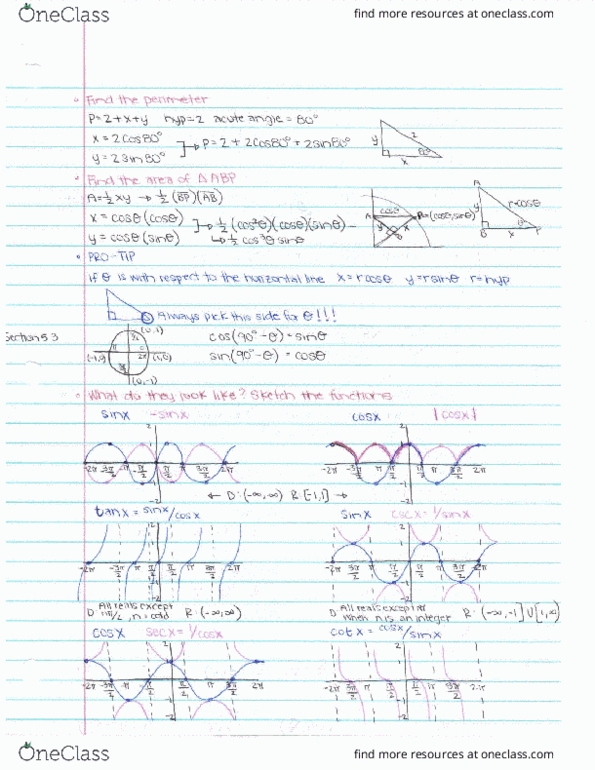 OneClass
find more resources at oneclass.com
Find the perimeter
P=2+x+y hyp=2 acute angle = 80°
x = 2cos80°
y = 2sin80°
P=2 + 2cos80° + 2sin80°
y 2 80° x
Find the area of △ABP
A=½xy → ½(BP)(AB)
x = cosθ(cosθ)
y = cosθ(sinθ)
½(cos²θ)(cosθ)(sinθ)
↳ ½cos³θ sinθ
A cosθ P=(cosθ,sinθ)
A r=cosθ y B x P
PRO-TIP
If θ is with respect to the horizontal line x=rcosθ y=rsinθ r=hyp
Always pick this side for θ!!!
Section 5.3
(0,1)
(-1,0) (1,0)
(0,-1)
cos(90°-θ)=sinθ
sin(90°-θ)=cosθ
What do they look like? Sketch the functions
sinx -sinx
cosx |cosx|
← D:(-∞,∞) R:[-1,1] →
tanx = sinx/cosx
sinx cscx=1/sinx
D: All reals except nπ/2, n=odd R:(-∞,∞)
D: All reals except nπ when n is an integer R: (-∞,-1]U[1,∞)
cosx secx=1/cosx
cotx = cosx/sinx
OneClass
find more resources at oneclass.com